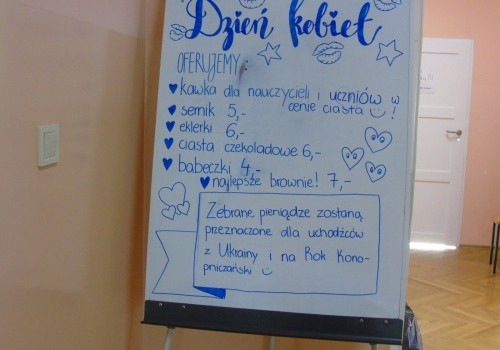 Dzień kobiet
OFERUJEMY:
kawka dla nauczycieli i uczniów w
cenie ciasta!
sernik 5,-
eklerki 6,-
ciasta czekoladowe 6,-
babeczki 4,-
najlepsze brownie! 7,-
Zebrane pieniądze zostaną
przeznaczone dla uchodźców
z Ukrainy i na Rok Kono-
pniczański